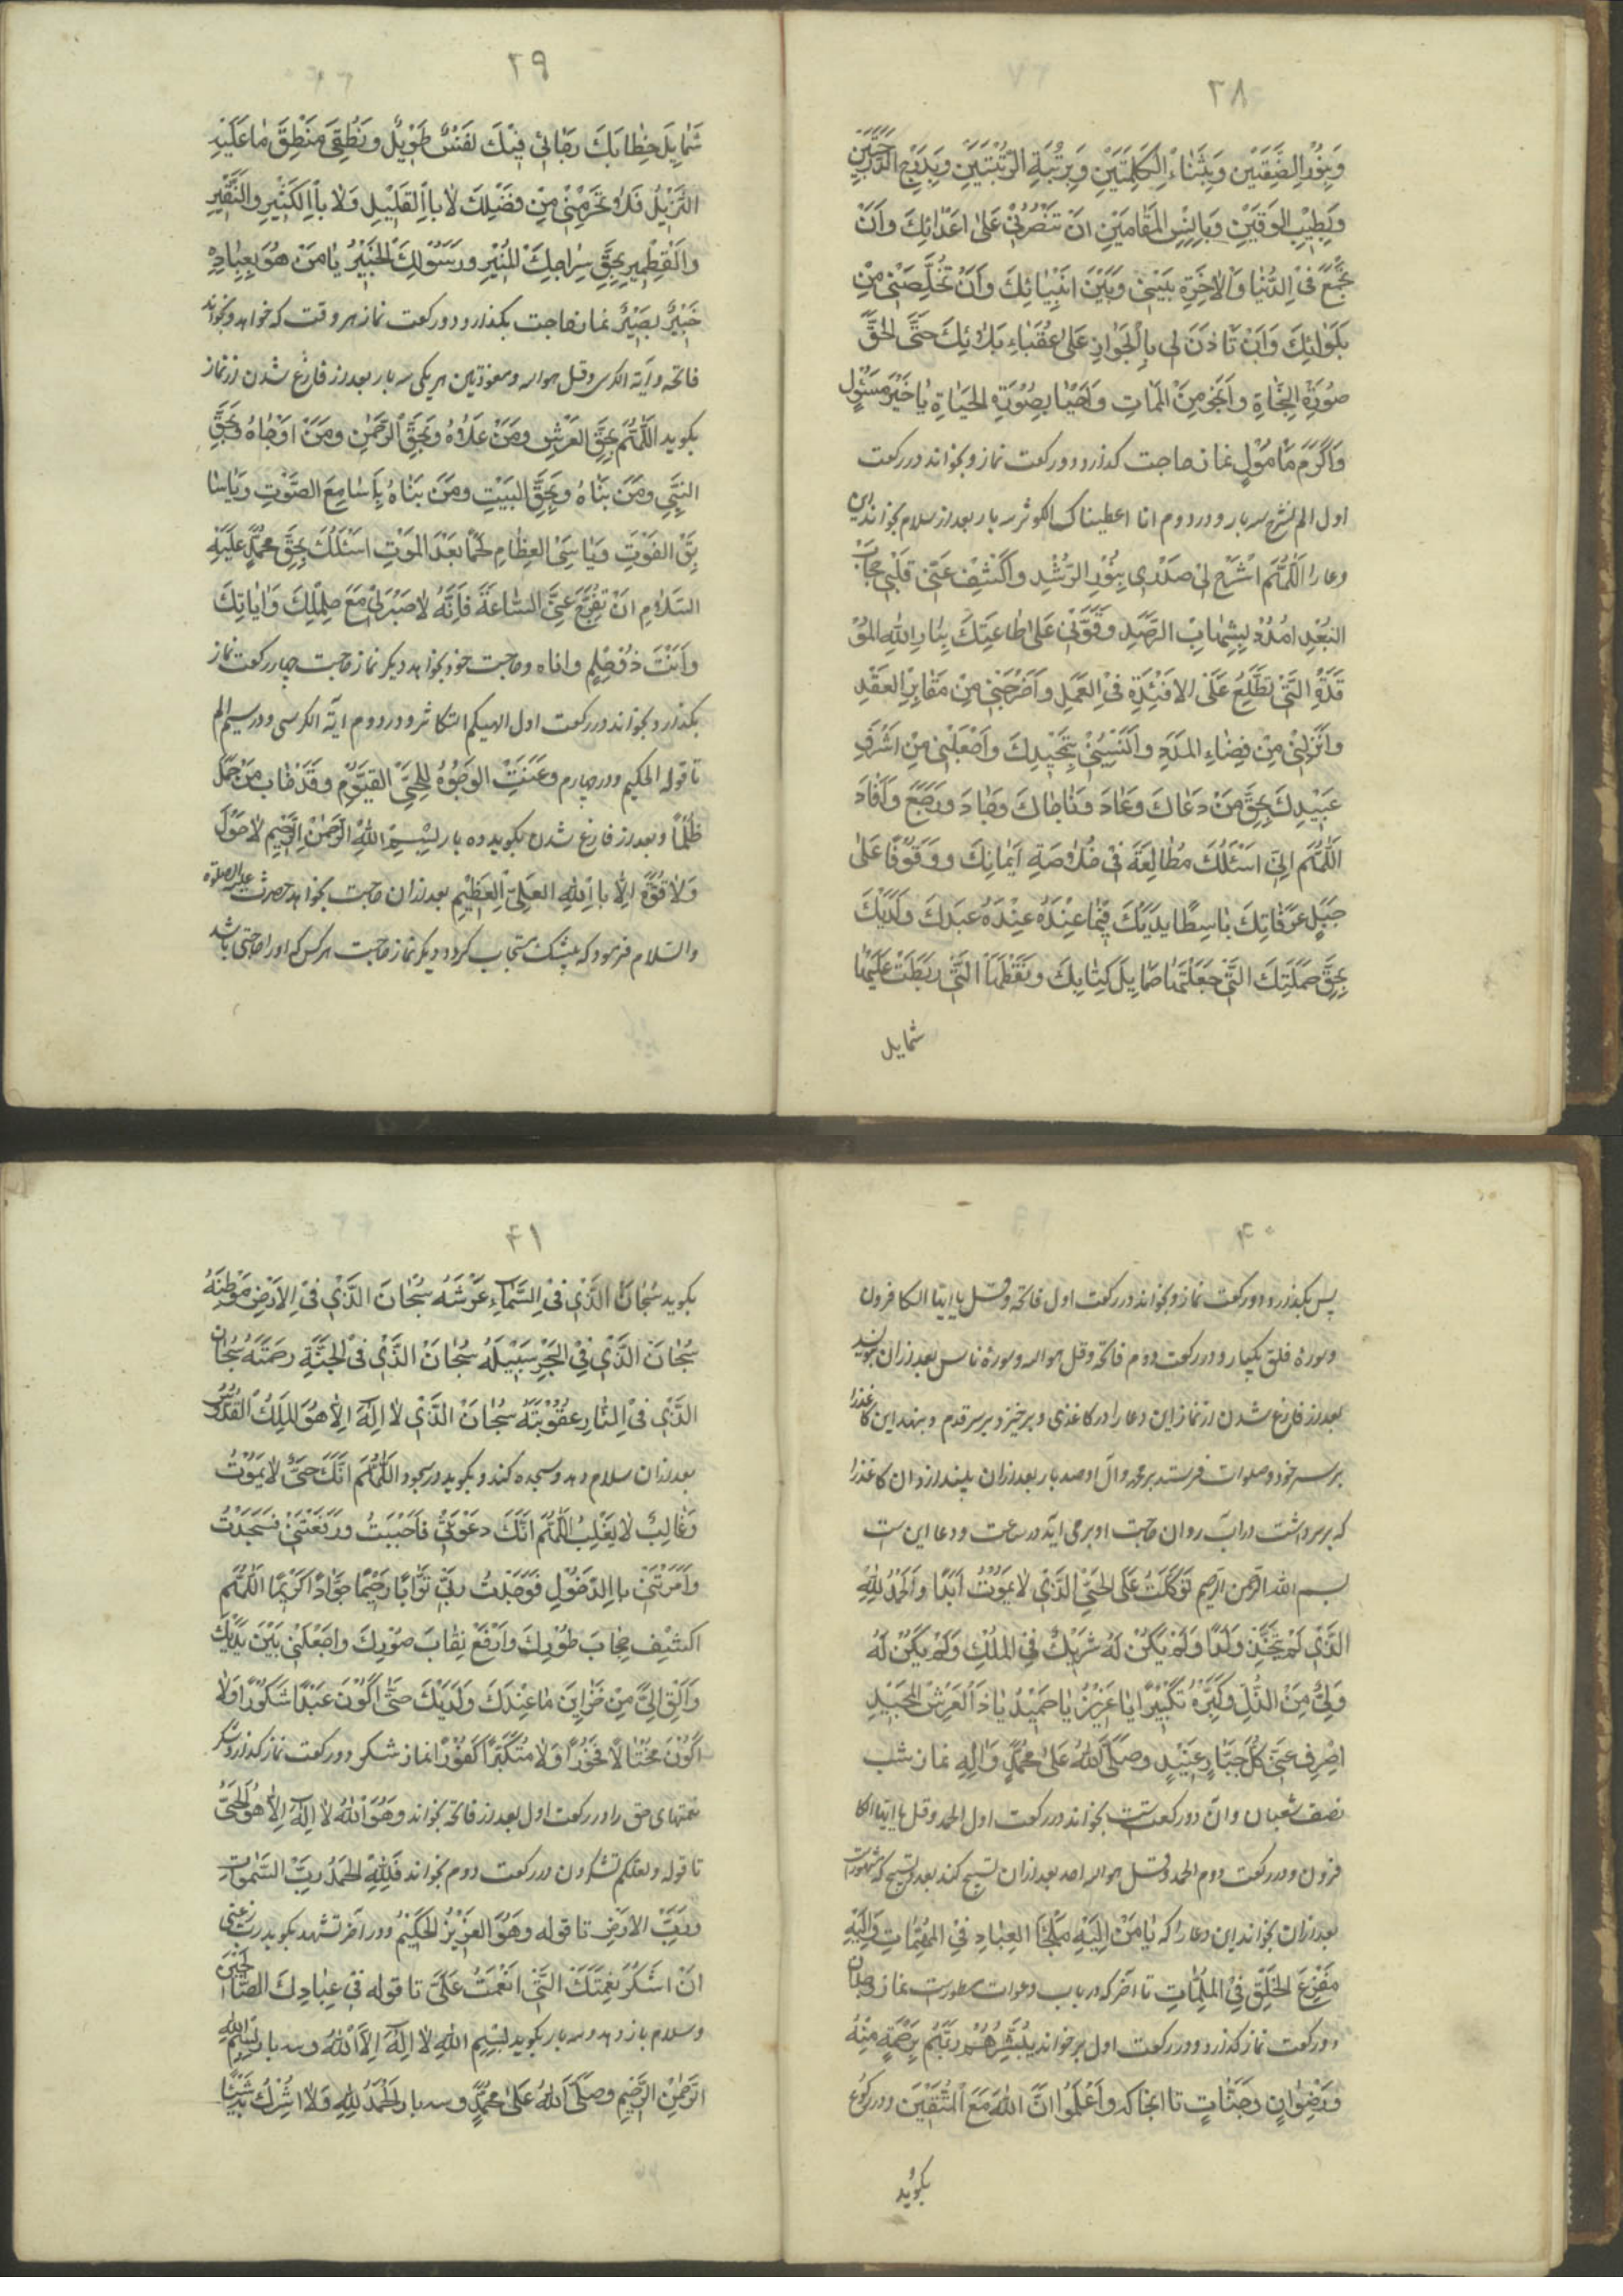 ۳۸
وَبِنُوْرِ الصِّفَتَيْنِ وَبِثَنَاءِ الْكَلِمَتَيْنِ وَبِرُتْبَةِ الرُّتْبَتَيْنِ وَبِدَرَجِ الدَّرَجَتَيْنِ
وَبِطِيْبِ الوَقِيَيْنِ وَبِاُنْسِ المَقَامَيْنِ اَنْ تَنْصُرَنِيْ عَلىٰ اَعْدَائِكَ وَاَنْ
تَجْمَعَ فِى الدُّنْيَا وَالْاٰخِرَةِ بَيْنِيْ وَبَيْنَ اَنْبِيَائِكَ وَاَنْ تُخَلِّصَنِيْ مِنْ
بَلَوٰائِكَ وَاَنْ تَأْذَنَ لِى بِالْجَوَازِ عَلىٰ عُقَبَاءِ بَلَائِكَ حَتَّى الْحَقَّ
صُوْرَةِ النَّجَاةِ وَاَنْجُوَ مِنَ المَمَاتِ وَاَحْيَا بِصُوْرَةِ الحَيَاةِ يَا خَيْرَ مَسْئُولٍ
وَاَكْرَمَ مَاْمُوْلٍ نماز حاجت كذرد دو ركعت نماز و بخواند در ركعت
اول الم نشرح سه بار و در دوم انا اعطيناك الكوثر سه بار بعد از سلام بخواند این
دعا را اَللّٰهُمَّ اشْرَحْ لِيْ صَدْرِى بِنُوْرِ الرُّشْدِ وَاكْشِفْ عَنِّيْ قَلْبِيْ حِجَابَ
البُعْدِ امْدُدْ بِشِهَابِ الرَّصَدِ وَقَوِّنِيْ عَلىٰ طَاعَتِكَ بِنَارِ اللهِ المُوْ
قَدَةِ الَّتِيْ تَطَّلِعُ عَلَى الاَفْئِدَةِ فِى العَمَلِ وَاَخْرِجْنِيْ مِنْ مَقَابِرِ العَقْدِ
وَاَنْزِلْنِيْ مِنْ فَضَاءِ المَدَدِ وَاَلْبِسْنِيْ تَمْجِيْدِكَ وَاجْعَلْنِيْ مِنْ اَشْرَفِ
عَبِيْدِكَ بِحَقِّ مَنْ دَعَاكَ وَعَادَ وَنَاجَاكَ وَجَادَ وَرَجَعَ وَاَفَادَ
اَللّٰهُمَّ اِنِّى اَسْئَلُكَ مُطَالَعَةً فِيْ خُلَاصَةِ اَيْمَانِكَ وَوُقُوْفًا عَلىٰ
جَبَلِ عَرَفَاتِكَ بَاسِطًا يَدَيْكَ فِيْمَا عِنْدَهُ عِنْدَهُ عَبْدَكَ وَلَدَيْكَ
بِحَقِّ حَمَلَتِكَ الَّتِيْ جَعَلْتَهَا حَمَايِلَ كِتَابِكَ وَنُقْطَتِهَا الَّتِيْ رَبَطَتْ عَلَيْهَا
شمايل
۳۹
شَمَايِلَ خِطَابِكَ رَجَائِى فِيْكَ لَفَسٌ طَوِيْلٌ وَنُطْقِىَ مَنْطِقَ مَا عَلَيْهِ
التَّنْزِيْلُ فَلَا تَحْرِمْنِيْ مِنْ فَضْلِكَ لَا بِالقَلِيْلِ وَلَا بِالكَثِيْرِ وَالنَّقِيْرِ
وَالقِطْمِيْرِ بِحَقِّ سِرَاجِكَ المُنِيْرِ وَرَسُوْلِكَ الخَبِيْرِ يَا مَنْ هُوَ بِعِبَادِهِ
خَبِيْرٌ بَصِيْرٌ نماز حاجت بكذارد دو ركعت نماز هر وقت كه خواهد و بخواند
فاتحه و آية الكرسى و قل هو الله و معوذتين هر يكى سه بار بعد از فارغ شدن از نماز
بكويد اَللّٰهُمَّ بِحَقِّ العَرْشِ وَمَنْ عَلَاهُ وَبِحَقِّ الرَّحْمٰنِ وَمَنْ اَوْحَاهُ وَبِحَقِّ
النَّبِيِّ وَمَنْ بَنَاهُ وَبِحَقِّ البَيْتِ وَمَنْ بَنَاهُ يَا سَامِعَ الصَّوْتِ وَيَا سَا
بِقَ الفَوْتِ وَيَا سِىَ العِظَامِ لَحْمًا بَعْدَ المَوْتِ اَسْئَلُكَ بِحَقِّ مُحَمَّدٍ عَلَيْهِ
السَّلَامِ اَنْ تُفَرِّجَ عَنِّى السَّاعَةَ فَاِنَّهُ لَا صَبْرَ لِىْ مَعَ حِلْمِكَ وَاٰيَاتِكَ
وَاَنْتَ ذُوْ حِلْمٍ وَاناه و حاجت خود بخواهد ديكر نماز حاجت چهار ركعت نماز
بكذارد و بخواند در ركعت اول الهيكم التكاثر و در دوم آية الكرسى و در سيم الم
تا قوله الحكيم و در چهارم وَعَنَتِ الوُجُوْهُ لِلْحَيِّ القَيُّوْمِ وَقَدْ خَابَ مَنْ حَمَلَ
ظُلْمًا و بعد از فارغ شدن بكويد ده بار بِسْمِ اللهِ الرَّحْمٰنِ الرَّحِيْمِ لَا حَوْلَ
وَلَا قُوَّةَ اِلَّا بِاللهِ العَلِيِّ العَظِيْمِ بعد از آن حاجت بخواهد حضرت عليه الصلوة
والسلام فرمود كه بيشك مستجاب كردد ديكر نماز حاجت هر كس كه او را حاجتى باشد
۴۰
پس بكذارد دو ركعت نماز و بخواند در ركعت اول فاتحه و قل يا ايها الكافرون
و سورة فلق يكبار و در ركعت دوم فاتحه و قل هو الله و سورة ناس بعد از آن بكويد
بعد از فارغ شدن از نماز اين دعا را در كاغذى و برخيزد بر سر قدم و بنهد اين كاغذ را
بر سر خود و صلوات فرستد بر محمد و آل او صد بار بعد از آن بيندازد آن كاغذ را
كه بر سر داشت در آب روان حاجت او بر مى آيد در ساعت و دعا اين است
بسم الله الرحمن الرحيم تَوَكَّلْتُ عَلَى الحَيِّ الَّذِيْ لَا يَمُوْتُ اَبَدًا وَالحَمْدُ لِلّٰهِ
الَّذِيْ لَمْ يَتَّخِذْ وَلَدًا وَلَمْ يَكُنْ لَهُ شَرِيْكٌ فِى المُلْكِ وَلَمْ يَكُنْ لَهُ
وَلِيٌّ مِنَ الذُّلِّ وَكَبِّرْهُ تَكْبِيْرًا يَا عَزِيْزُ يَا حَمِيْدُ يَا ذَا العَرْشِ المَجِيْدِ
اصْرِفْ عَنِّيْ كُلَّ جَبَّارٍ عَنِيْدٍ وَصَلَّى اللهُ عَلىٰ مُحَمَّدٍ وَاٰلِهِ نماز شب
نصف شعبان و آن دو ركعت است بخواند در ركعت اول الحمد و قل يا ايها الكا
فرون و در ركعت دوم الحمد و قل هو الله احد بعد از آن تسبيح كند بعد تسبيح كه مشهورست
بعد از آن بخواند اين دعا را كه يَا مَنْ اِلَيْهِ مَلْجَأُ العِبَادِ فِيْ المُهِمَّاتِ وَاِلَيْهِ
مَفْزَعُ الخَلْقِ فِى المُلِمَّاتِ تا آخر كه در باب دعوات مسطورست نماز
دو ركعت نماز كذرد و در ركعت اول بر خواند يُبَشِّرُهُمْ رَبُّهُمْ بِرَحْمَةٍ مِنْهُ
وَرِضْوَانٍ وَجَنَّاتٍ تا اينجا كه وَاعْلَمُوا اَنَّ اللهَ مَعَ المُتَّقِيْنَ و در ركوع
بكويد
۴۱
بكويد سُبْحَانَ الَّذِيْ فِى السَّمَاءِ عَرْشُهُ سُبْحَانَ الَّذِيْ فِى الاَرْضِ مَوْطِئُهُ
سُبْحَانَ الَّذِيْ فِى البَحْرِ سَبِيْلُهُ سُبْحَانَ الَّذِيْ فِى الجَنَّةِ رَحْمَتُهُ سُبْحَانَ
الَّذِيْ فِى النَّارِ عُقُوْبَتُهُ سُبْحَانَ الَّذِيْ لَا اِلٰهَ اِلَّا هُوَ المَلِكُ القُدُّوْسُ
بعد از آن سلام دهد و سجده كند و بكويد در سجود اَللّٰهُمَّ اَنَّكَ حَيٌّ لَا يَمُوْتُ
وَغَالِبٌ لَا يُغْلَبُ اَللّٰهُمَّ اَنَّكَ دَعَوْتَنِيْ فَاَجَبْتُ وَرَفَعْتَنِيْ فَسَجَدْتُ
وَاَمَرْتَنِيْ بِالدُّخُوْلِ فَوَجَدْتُ رَبِّيْ تَوَّابًا رَحِيْمًا جَوَّادًا كَرِيْمًا اَللّٰهُمَّ
اكْشِفْ حِجَابَ طُوْرِكَ وَارْفَعْ نِقَابَ صُوْرِكَ وَاجْعَلْنِيْ بَيْنَ يَدَيْكَ
وَاَلْقِ اِلَيَّ مِنْ خَزَايِنِ مَا عِنْدَكَ وَلَدَيْكَ حَتَّى اَكُوْنَ عَبْدًا شَكُوْرًا وَلَا
اَكُوْنَ مُخْتَالًا فَخُوْرًا وَلَا مُتَكَبِّرًا كَفُوْرًا نماز شكر دو ركعت نماز كذارد شكر
نعمتهاى حق را در ركعت اول بعد از فاتحه بخواند وَهُوَ اللهُ لَا اِلٰهَ اِلَّا هُوَ الحَيُّ
تا قوله و لعلكم تشكرون در ركعت دوم بخواند فَلِلّٰهِ الحَمْدُ رَبِّ السَّمٰوٰتِ
وَرَبِّ الاَرْضِ تا قوله وَهُوَ العَزِيْزُ الحَكِيْمُ و در آخر تشهد بكويد رب اوزعنى
اَنْ اَشْكُرَ نِعْمَتَكَ الَّتِيْ اَنْعَمْتَ عَلَيَّ تا قوله فِى عِبَادِكَ الصَّالِحِيْنَ
و سلام باز دهد و سه بار بكويد بِسْمِ اللهِ لَا اِلٰهَ اِلَّا اللهُ و سه بار بِسْمِ اللهِ
الرَّحْمٰنِ الرَّحِيْمِ وَصَلَّى اللهُ عَلىٰ مُحَمَّدٍ و سه بار اَلحَمْدُ لِلّٰهِ وَلَا اُشْرِكُ شَيْئًا